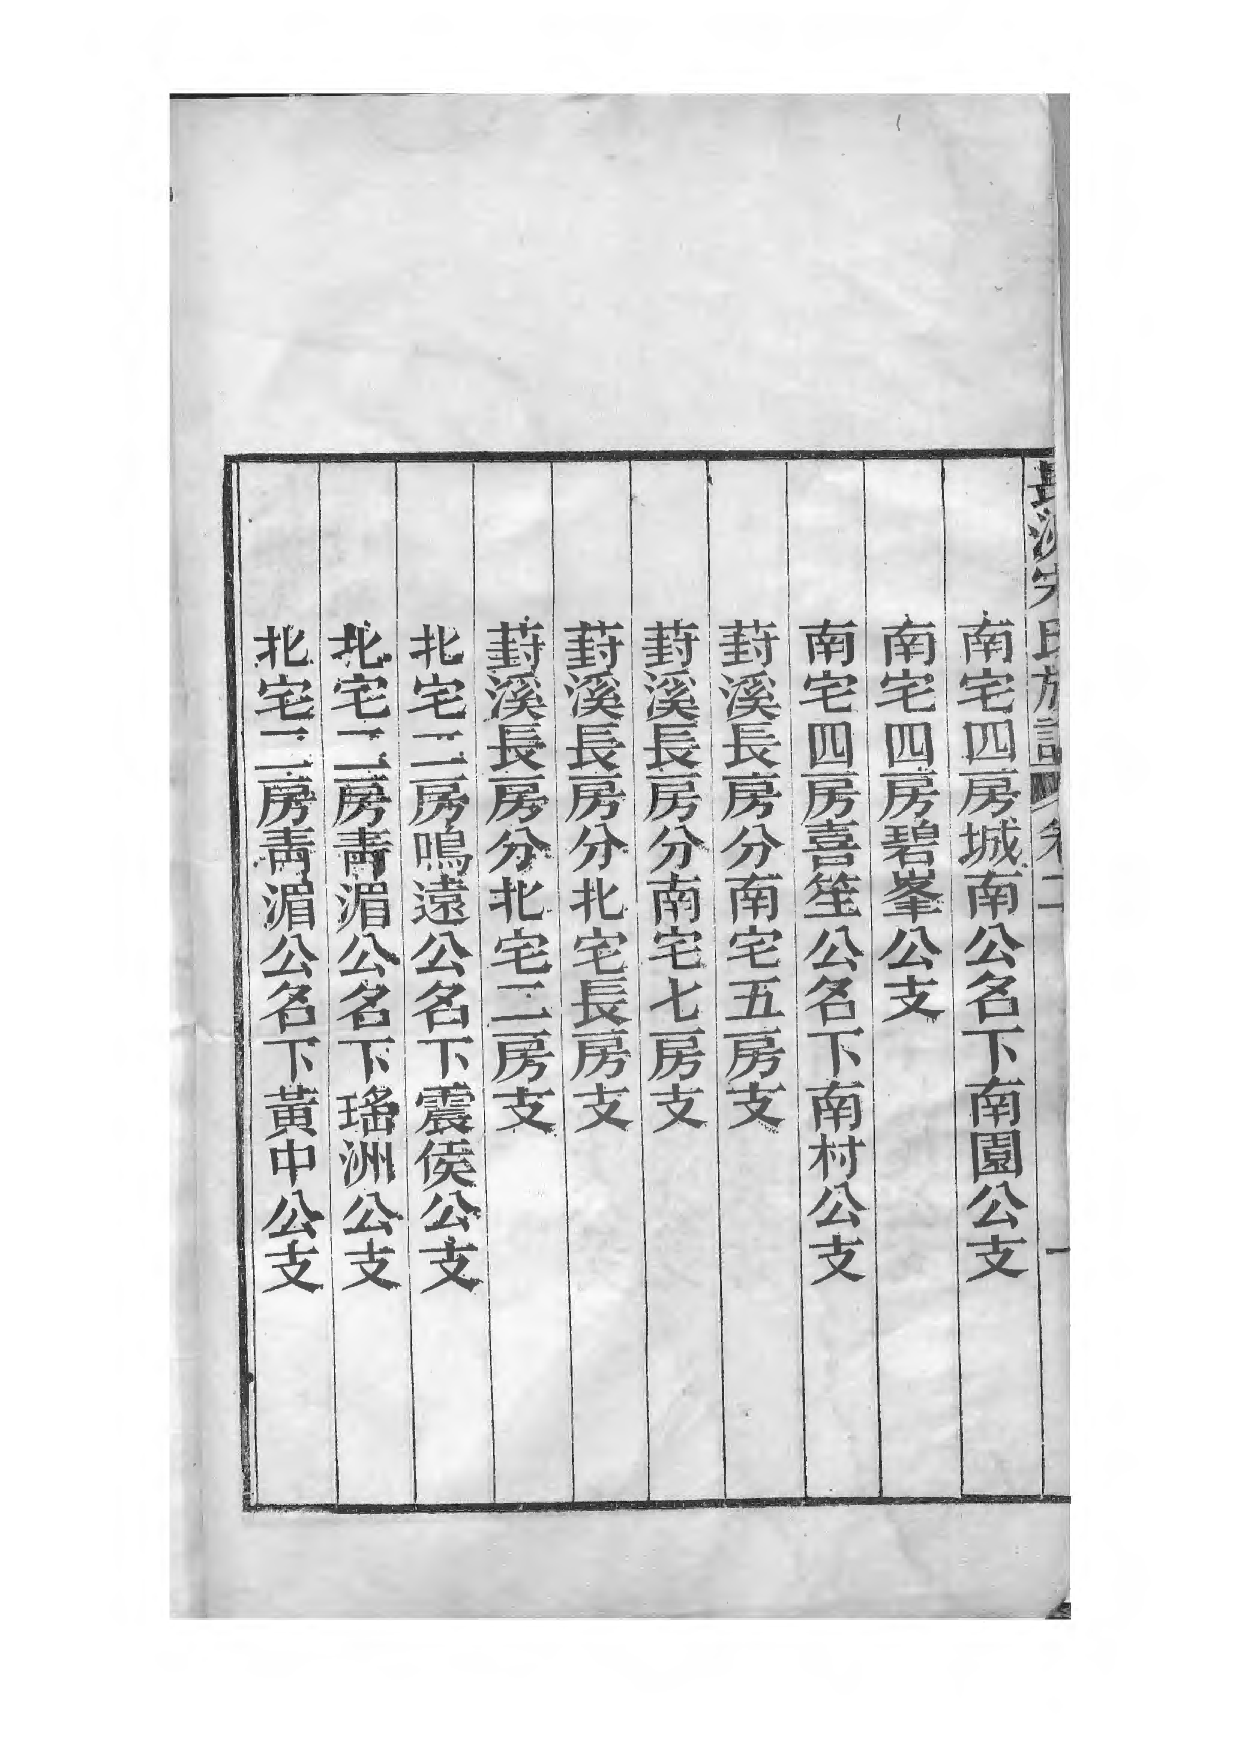 長溪宋氏族譜 卷二 一
南宅四房城南公名下南園公支
南宅四房碧峯公支
南宅四房喜笙公名下南村公支
葑溪長房分南宅五房支
葑溪長房分南宅七房支
葑溪長房分北宅長房支
葑溪長房分北宅二房支
北宅二房鳴遠公名下震侯公支
北宅二房靑湄公名下瑤洲公支
北宅二房靑湄公名下黃中公支